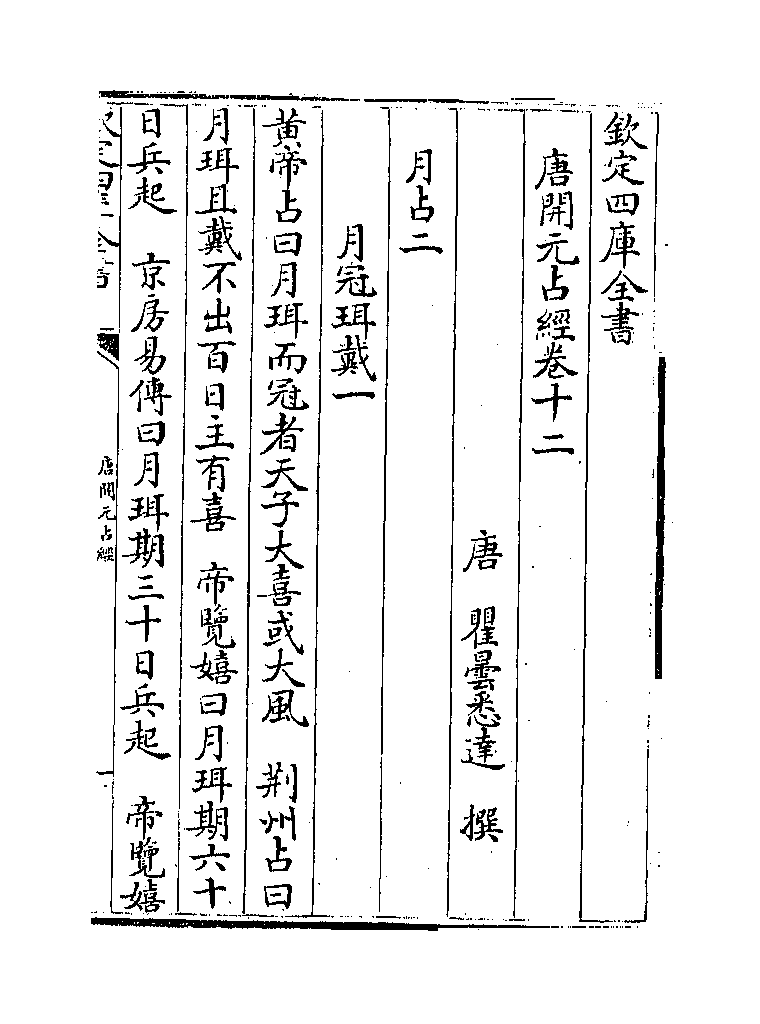 欽定四庫全書
唐開元占經卷十二
唐 瞿曇悉達 撰
月占二
月冠珥戴一
黄帝占曰月珥而冠者天子大喜或大風 荆州占曰
月珥且戴不出百日主有喜 帝覽嬉曰月珥期六十
日兵起 京房易傳曰月珥期三十日兵起 帝覽嬉
唐開元占經
一